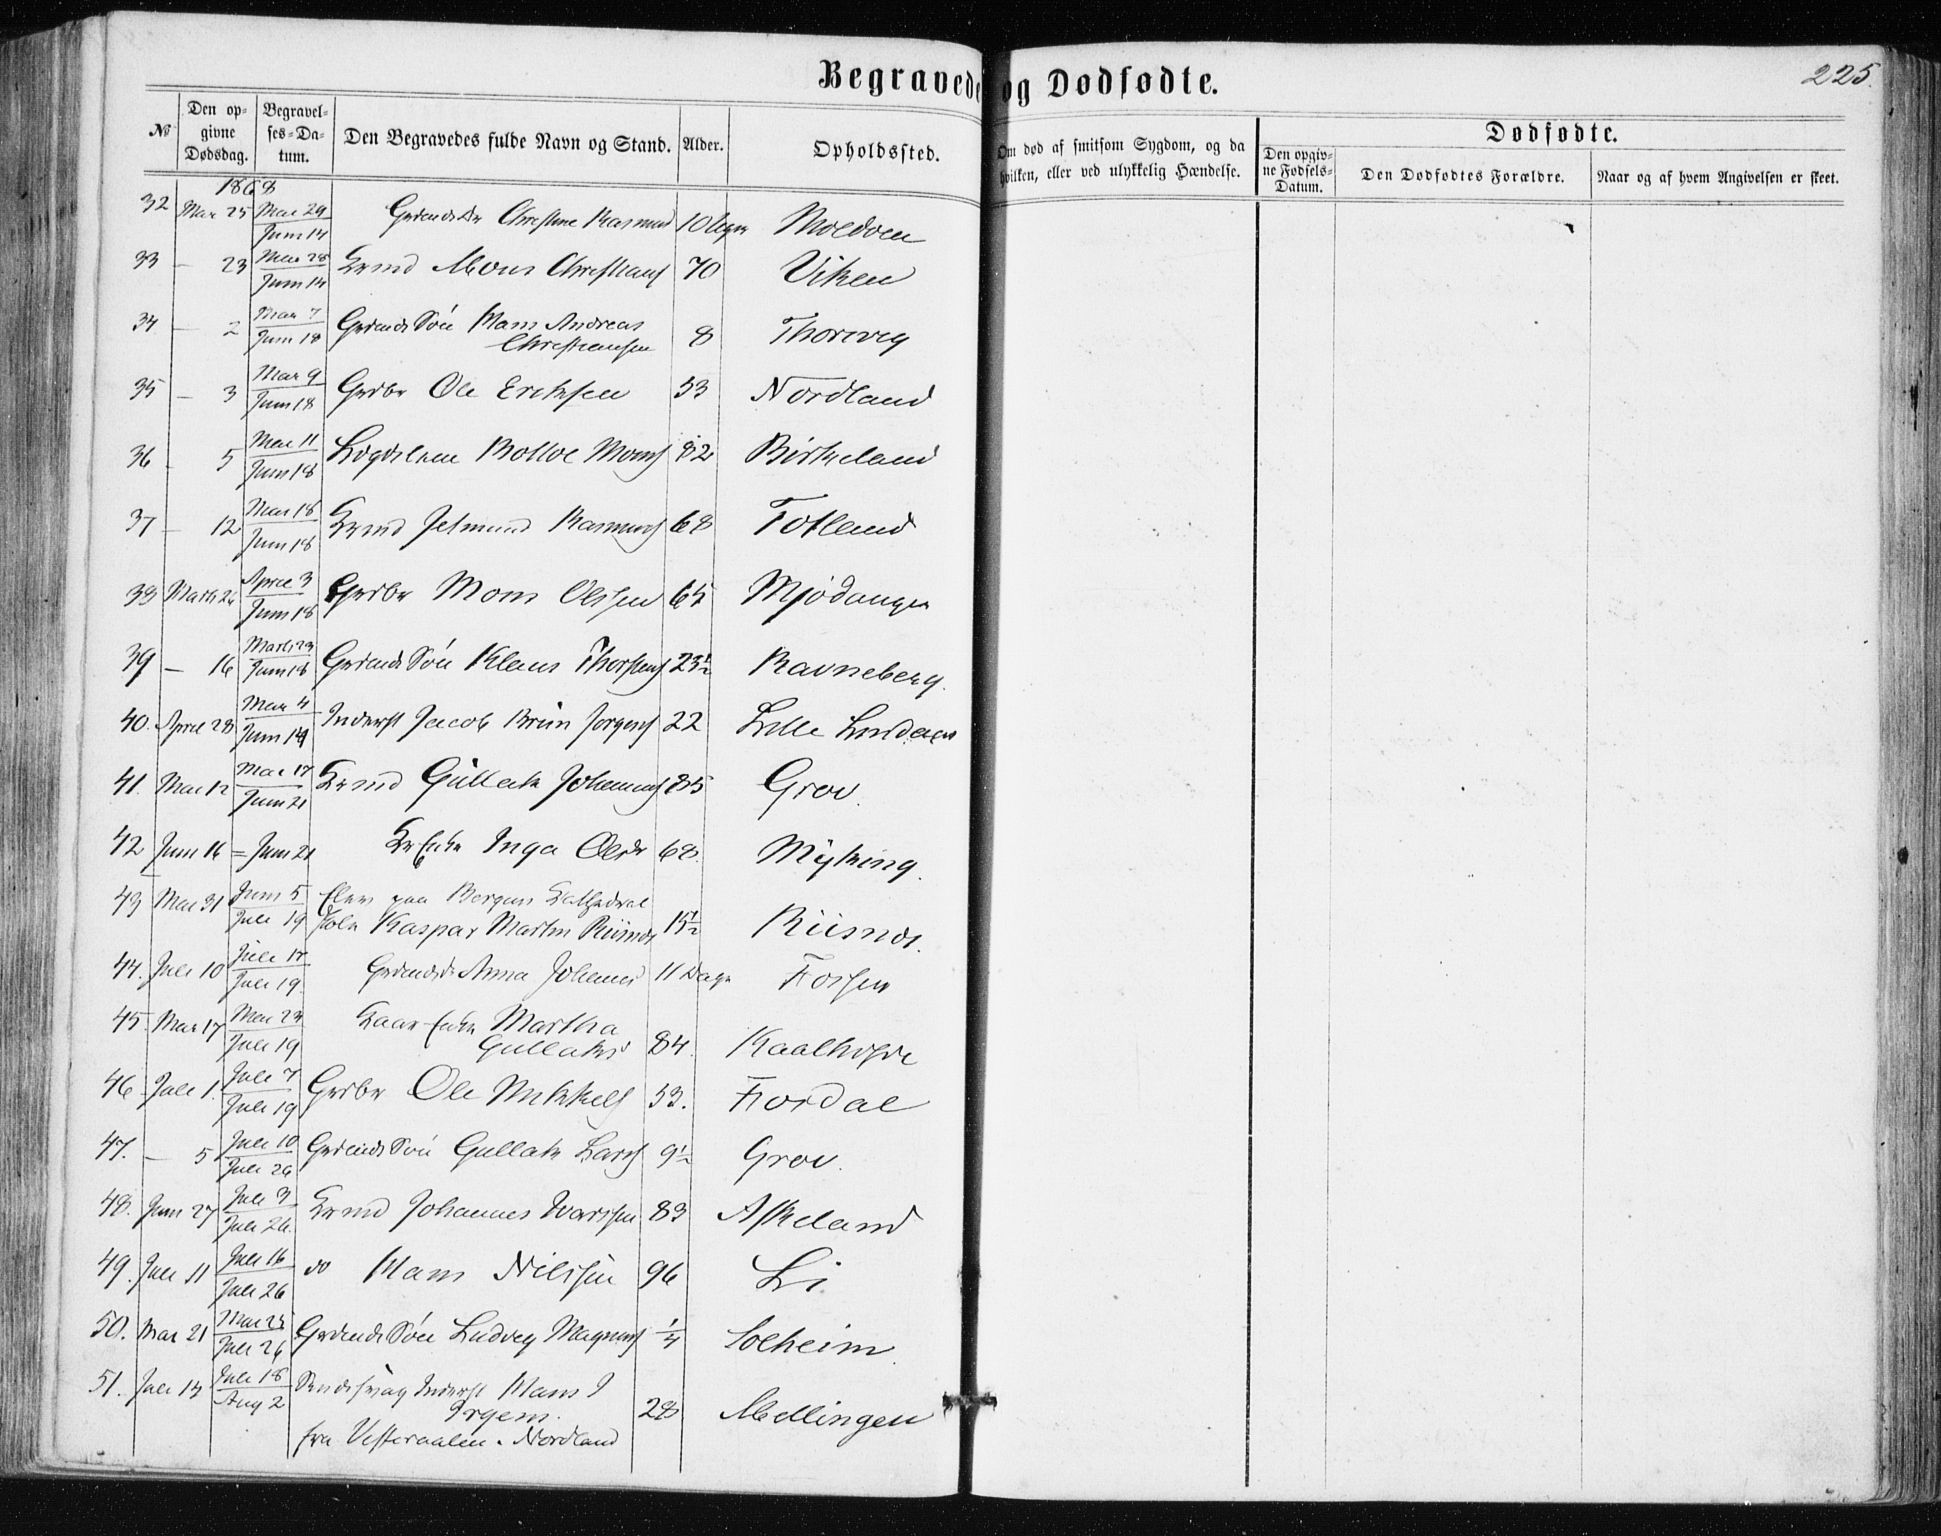 Begravede og Dødfødte.
225.
No
Den opgivne Dødsdag.
Begravelses-Datum.
Den Begravedes fulde Navn og Stand.
Alder.
Opholdssted.
Om død af smitsom Sygdom, og da hvilken, eller ved ulykkelig Hændelse.
Dødfødte.
Den opgivne Fødsels-Datum.
Den Dødfødtes Forældre.
Naar og af hvem Angivelsen er skeet.
1868
32 Mai 25 Mai 29 / Juni 14 Christine Rasmusd 10 Uger
33 — 23 Mai 28 / Juni 14 Mons Christians 70 Viken
34 — 2 Mai 7 / Juni 18 Grdmds Søn Hans Andreas Christiansen 8 Thorsveg
35 — 3 Mai 9 / Juni 18 Grdbr Ole Eriksen 53 Nordland
36 — 5 Mai 11 / Juni 18 Monss 82 Birkeland
37 — 12 Mai 18 / Juni 18 Krmd Jetmund Rasmuss 68 Totland
38 Marts 26 April 3 / Juni 18 Grdbr Mons Olsen 65 Mjødanger
39 — 16 Marts 23 / Juni 18 Grdmds Søn Klaus Thorstens 23½ Ravneberg.
40. April 28 Mai 4 / Juni 14 Inderst Jacob Brun Jørgens 22 Lille Lindaas
41. Mai 12 Mai 17 / Juni 21 Krmd Gullak Johanness 85 Grov.
42 Juni 16 = Juni 21 Kr Enke Inga Olsdr 68. Myking.
43 Mai 31 Juni 5 / Juli 19 Elev paa Bergens Kathedral
skole Kaspar Martin Riisnes 15½ Riisnes.
44. Juli 10 Juli 17 / Juli 19. Anna Johannesd 11 Dage Fossen
45. Mai 17 Mai 23 / Juli 19 Kaar Enke Martha
Gullaksd 84. Kaalhofde
46 Juli 1. Juli 7 / Juli 19 Grdbr Ole Mikkels 53. Fiordal
47. — 5 Juli 10 / Juli 26 Grdmds Søn Gullak Lars 9½ Grov.
48. Juni 27 Juli 3 / Juli 26. Krmd Johannes Ivarssen 83 Askeland
49. Juli 11 Juli 16 / Juli 26 do Hans Nilssen 96 Li.
50. Mai 21 Mai 25 / Juli 26 Grdmds Søn Ludvig Magnuss ¼ Solheim
51. Juli 13 Juli 18 / Aug 2 Inderst Hans J
Irgens. 28 Mellingen
fra Vesteraalen. Nordland